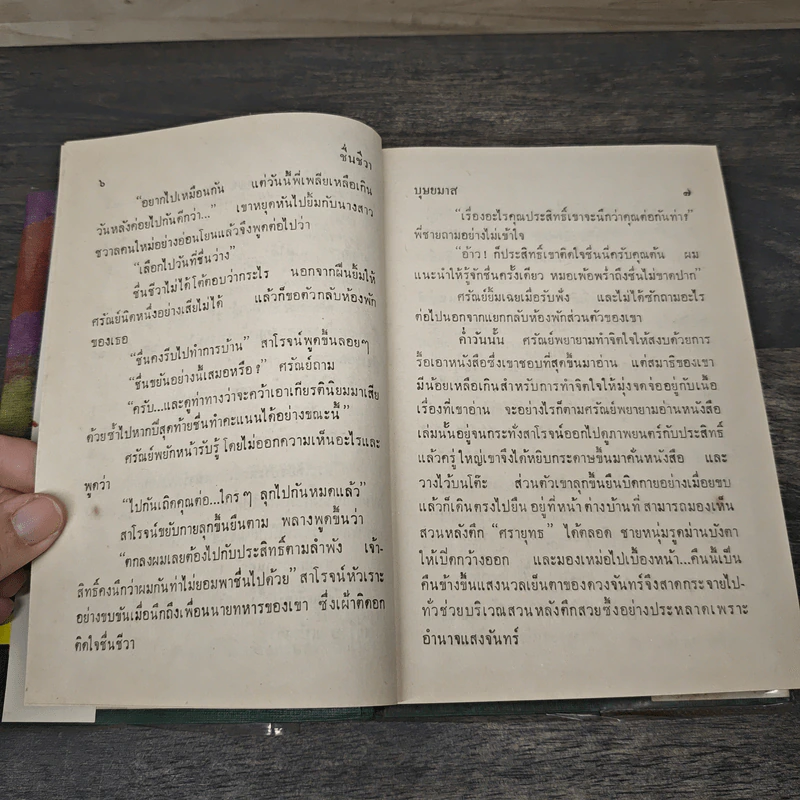 ชื่นชีวา
๖
“อยากไปเหมือนกัน แต่วันนี้พี่เพลียเหลือเกิน
วันหลังค่อยไปกันดีกว่า...” เขาหยุดหันไปยิ้มกับนางสาว
ชวาลคนใหม่อย่างอ่อนโยนแล้วจึงพูดต่อไปว่า
“เลือกไปวันที่ชื่นว่าง”
ชื่นชีวาไม่ได้โต้ตอบว่ากระไร นอกจากฝืนยิ้มให้
ศรัณย์นิดหนึ่งอย่างเสียไม่ได้ แล้วก็ขอตัวกลับห้องพัก
ของเธอ
“ชื่นคงรีบไปทำการบ้าน” สาโรจน์พูดขึ้นลอยๆ
“ชื่นขยันอย่างนี้เสมอหรือ?” ศรัณย์ถาม
“ครับ...และดูท่าทางว่าจะคว้าเอาเกียรตินิยมมาเสีย
ด้วยซ้ำไปหากปีสุดท้ายชื่นทำคะแนนได้อย่างขณะนี้”
ศรัณย์พยักหน้ารับรู้ โดยไม่ออกความเห็นอะไรและ
พูดว่า
“ไปกันเถิดคุณต่อ...ใครๆ ลุกไปกันหมดแล้ว”
สาโรจน์ขยับกายลุกขึ้นยืนตาม พลางพูดขึ้นว่า
“ตกลงผมเลยต้องไปกับประสิทธิ์ตามลำพัง เจ้า-
สิทธิ์คงนึกว่าผมกันท่าไม่ยอมพาชื่นไปด้วย” สาโรจน์หัวเราะ
อย่างขบขันเมื่อนึกถึงเพื่อนนายทหารของเขา ซึ่งเฝ้าติดอก
ติดใจชื่นชีวา
บุษยมาส
๗
“เรื่องอะไรคุณประสิทธิ์เขาจะนึกว่าคุณต่อกันท่า?”
พี่ชายถามอย่างไม่เข้าใจ
“อ้าว! ก็ประสิทธิ์เขาติดใจชื่นนี่ครับคุณต้น ผม
แนะนำให้รู้จักชื่นครั้งเดียว หมอเพ้อพร่ำถึงชื่นไม่ขาดปาก”
ศรัณย์ยิ้มเฉยเมื่อรับฟัง และไม่ได้ซักถามอะไร
ต่อไปนอกจากแยกกลับห้องพักส่วนตัวของเขา
ค่ำวันนั้น ศรัณย์พยายามทำจิตใจให้สงบด้วยการ
รื้อเอาหนังสือซึ่งเขาชอบที่สุดขึ้นมาอ่าน แต่สมาธิของเขา
มีน้อยเหลือเกินสำหรับการทำจิตใจให้มุ่งจดจ่ออยู่กับเนื้อ
เรื่องที่เขาอ่าน จะอย่างไรก็ตามศรัณย์พยายามอ่านหนังสือ
เล่มนั้นอยู่จนกระทั่งสาโรจน์ออกไปดูภาพยนตร์กับประสิทธิ์
แล้วครู่ใหญ่เขาจึงได้หยิบกระดาษขึ้นมาคั่นหนังสือ และ
วางไว้บนโต๊ะ ส่วนตัวเขาลุกขึ้นยืนบิดกายอย่างเมื่อยขบ
แล้วก็เดินตรงไปยืน อยู่ที่หน้า ต่างบ้านที่ สามารถมองเห็น
สวนหลังตึก “ศรายุทธ” ได้ตลอด ชายหนุ่มรูดม่านบังตา
ให้เปิดกว้างออก และมองเหม่อไปเบื้องหน้า...คืนนี้เป็น
คืนข้างขึ้นแสงนวลเย็นตาของดวงจันทร์จึงสาดกระจายไป-
ทั่วช่วยบริเวณสวนหลังตึกสวยซึ้งอย่างประหลาดเพราะ
อำนาจแสงจันทร์